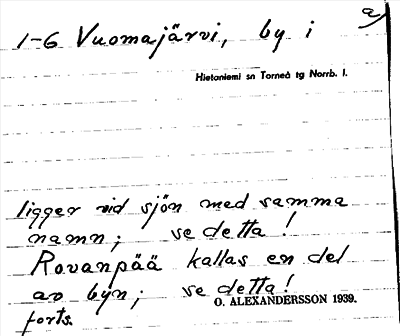 a)
1-6 Vuomajärvi, by i
Hietaniemi sn Torneå tg Norrb. l.
ligger vid sjön med samma
namn; se detta!
Rovanpää kallas en del
av byn; se detta!
O. ALEXANDERSSON 1939.
forts.